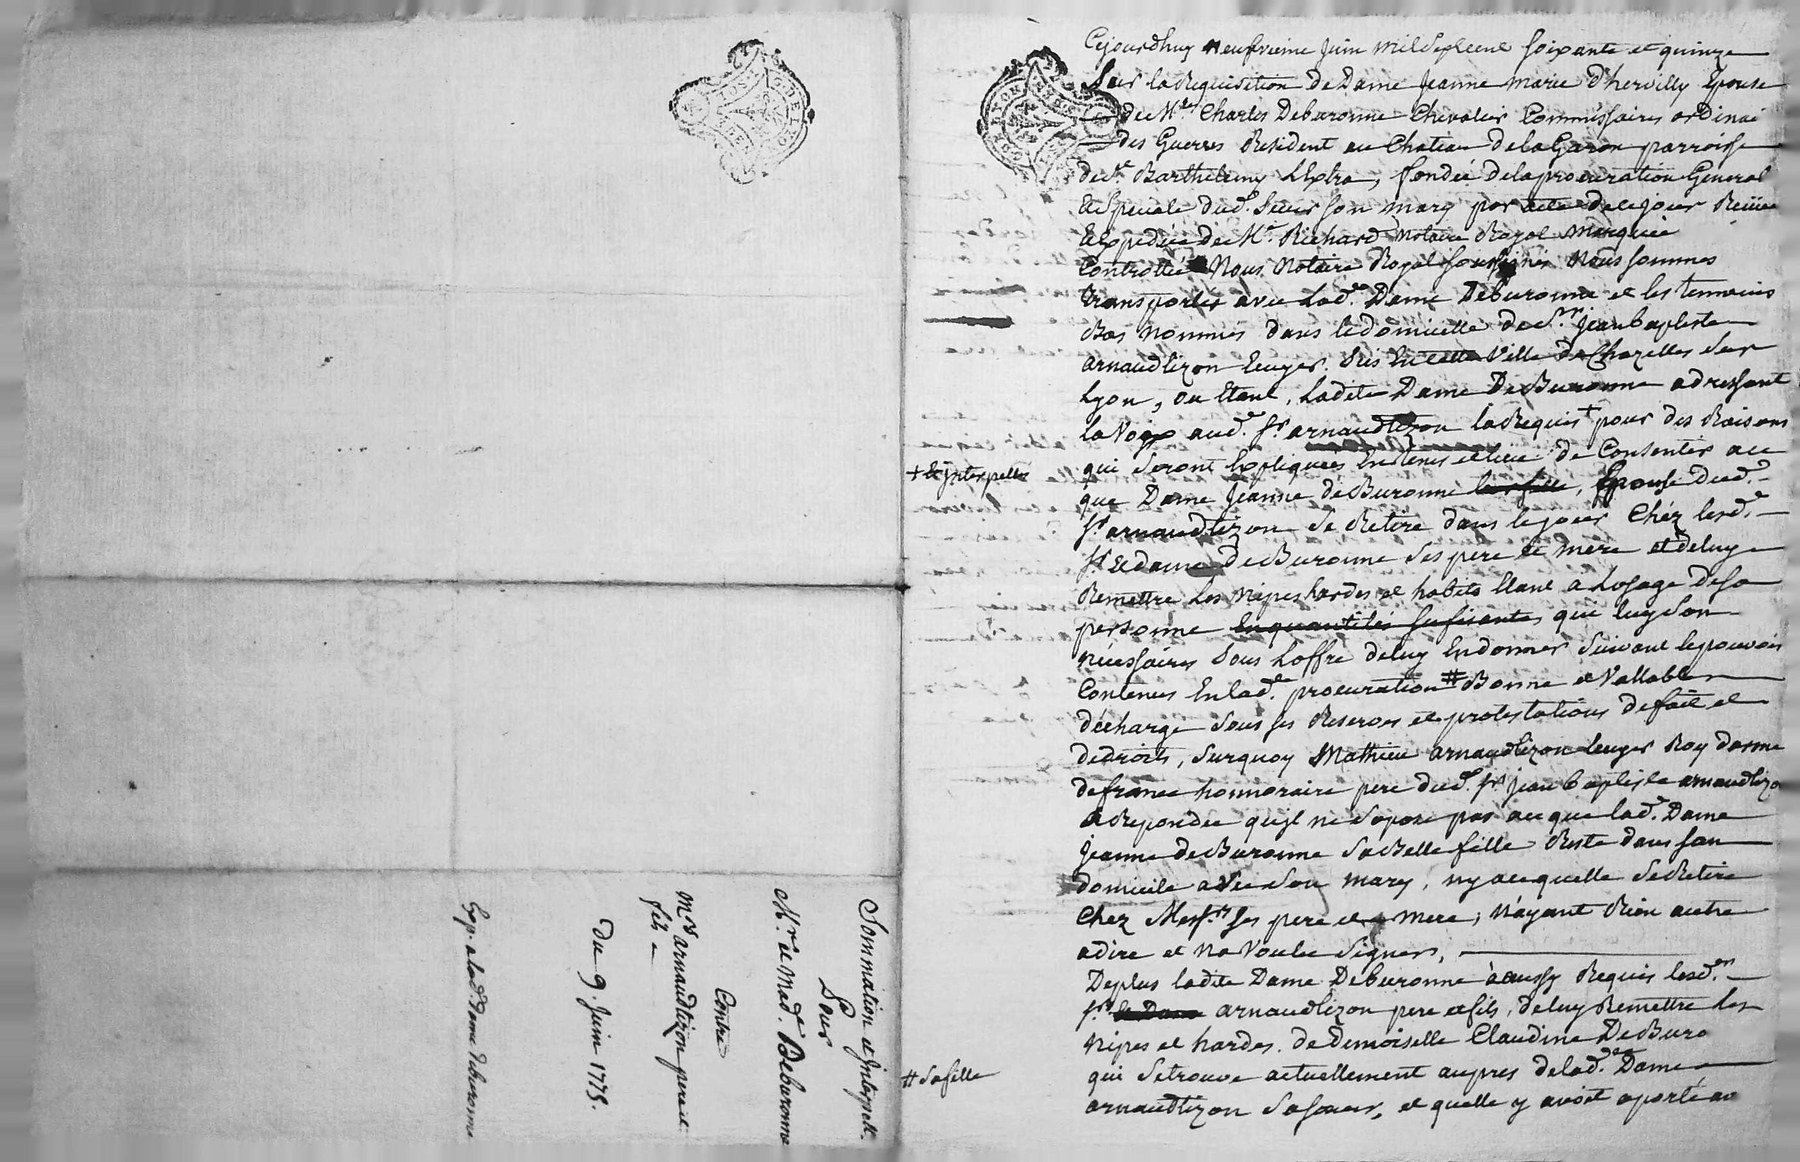 Cejourdhuy neufvieme Juin mil Septcent soixante et quinze
Sur la Requisition de Dame Jeanne marie D'hervilly Epouse
de Mre Charles Deburonne Chevalier Commissaires ordinai
des Guerres Resident au Chateau de la Garon parroisse
de St. Barthelemy Lestra, fondée de la procuration General
et Speciale dud. Sieur son mary par acte de ce jour Reçüe
et Expediée de Me. Richard Notaire Royal
Controllée Nous Notaire Royal soussignés Nous sommes
transportés avec lad.e Dame Deburonne et les temoins
Bas nommés dans le domicille de Sr. jean baptiste
arnaudtizon Ecuyer. Sis En cette Ville de Chazelles sur
Lyon, ou Etant, ladite Dame DeBuronne adressant
la Voix aud. Sr. arnaudtizon la Requis + pour des Raisons
qui seront Expliquées En tems et lieu de Consentir a ce
que Dame Jeanne deBuronne leur fille, Epouse dud.
Sr arnaudtizon Se Retire dans le jour Chéz lesd.
Sr. et dame DeBuronne Ses pere et mere et de luy
Remettre Les Nipes hardes et habits Etant a Lusage de sa
personne En quantités sufisantes qui luy son
nécessaires Sous Loffre de luy En donner Suivant le pouvoir
Contenus En lad.e procuration # Bonne et Vallable
décharge Sous ses Reserves et protestations de fait et
de droits, Surquoy Mathieu arnaudtizon Ecuyer Roy darme
de france honnoraire pere dud. Sr. jean baptiste arnaudtizo
a Repondu quil ne Sopose pas a ce que lad. Dame
Jeanne deBuronne Sa Belle fille Reste dans son
domicile avec Son mary, ny a ce quelle Se Retire
Chez Ses pere et mere, N'ayant Rien autre
a dire et Na Voulu Signer,
De plus ladite Dame Deburonne à aussy Requis lesd.
Srs et Dame arnaudtizon pere et fils, de luy Remettre les
Nipes et hardes de Demoiselle Claudine DeBuro
qui Se trouve actuellement aupres de lad.e Dame
arnaudtizon Sa Soeur, et quelle y avoit aporté au
+ Et Interpellé
# Sa fille
Sommation et Interpell.
Pour
Mr. et Mad.e Deburonne
Contre
Mrs arnaudtizon pere et
fils
du 9. Juin 1775.
Exp. a lad.e Dame deburonne